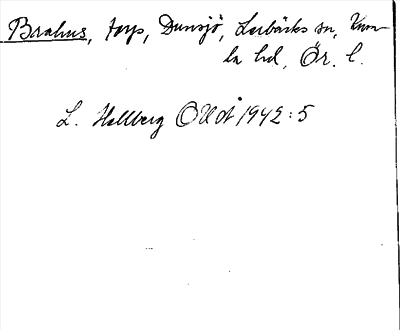 Brahus, torp, Dunsjö, Lerbäcks sn, Kum-
la hd, Ör. l.
L. Hallberg OUÅ 1942:5